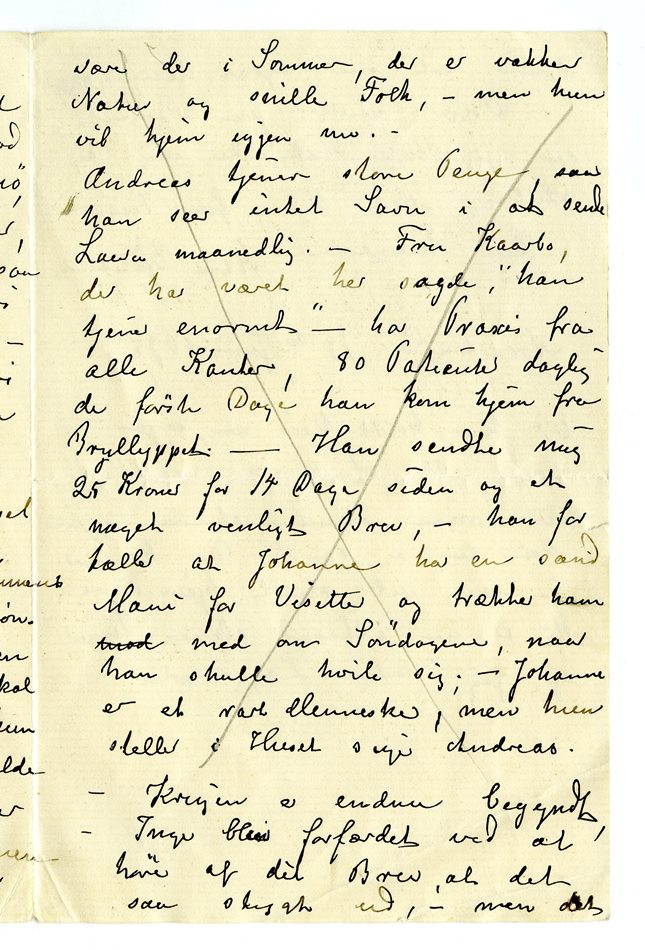 være der i Sommer, der er vakker
Natur og snille Folk, – men hun
vil hjem igjen nu. –
Andreas tjener store Penge, saa
han seer intet Savn i at sende
Laura maanedlig. – Fru Kaarbo,
der har været her sagde, "han
tjener enormt" – har Praxis fra
alle Kanter, 80 Patienter daglig
de første Dage han kom hjem fra
Bryllyppet. — Han sendte mig
25 Kroner for 14 Dage siden og et
meget venligt Brev, – han for
tæller at Johanne har en sand
Mani for Visitter og trækker ham
mod med om Söndagene, naar
han skulle hvile sig. – Johanne
er et rart Menneske, men hun
steller i Huset siger Andreas.
– Krigen er endnu begyndt,
– Inge blev forfærdet ved at
höre af dit Brev, at det
saa stygt ud, – men det
ød
iö"
saa
mmens
en
kal
hun